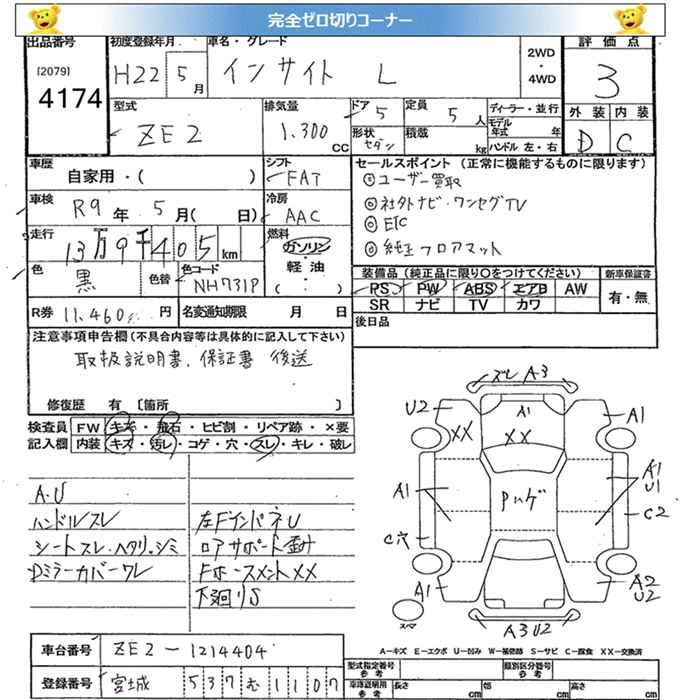 完全ゼロ切りコーナー
出品番号 初度登録年月 車名・グレード 2WD・4WD 評価点
[2079] 4174 H22 5月 インサイト L 3
型式 排気量 ドア 5 定員 5人 ディーラー・並行 外装 内装
ZE2 1.300 CC 形状 セダン 積載 kg モデル年式 年 ハンドル 左・右 D C
車歴 シフト セールスポイント(正常に機能するものに限ります)
自家用・( ) FAT ①ユーザー買取
車検 冷房 ②社外ナビ・ワンセグTV
R9年 5月( 日) AAC ③ETC
走行 燃料 ④純正フロアマット
13万9千405km ガソリン
色 色替 色コード 軽油 装備品(純正品に限り○をつけてください) 新車保証書
黒 NH731P ( ) PS PW ABS エアB AW 有・無
SR ナビ TV カワ
R券 11,460円 名変通知期限 月 日 後日品
注意事項申告欄(不具合内容等は具体的に記入して下さい)
取扱説明書、保証書 後送
修復歴 有 [箇所 ]
検査員 FW キズ・飛石・ヒビ割・リペア跡・×要
記入欄 内装 キズ・汚レ・コゲ・穴・スレ・キレ・破レ
A・U
ハンドルスレ 左Fインパネ U
シートスレ・ヘタリ・シミ ロアサポート歪み
Dミラーカバーワレ Fホースメント XX
下廻りS
ズレ A3
U2 A1 A1
XX XX
A1 Pハゲ A1 U1
C穴 C2
A1 A2 U2
スペア A3 U2
A−キズ E−エクボ U−凹み W−補修跡 S−サビ C−腐食 XX−交換済
車台番号 ZE2−1214404
登録番号 宮城 537 む 1107
型式指定番号 参考 類別区分番号 参考
車庫証明用 参考 長さ cm 幅 cm 高さ cm